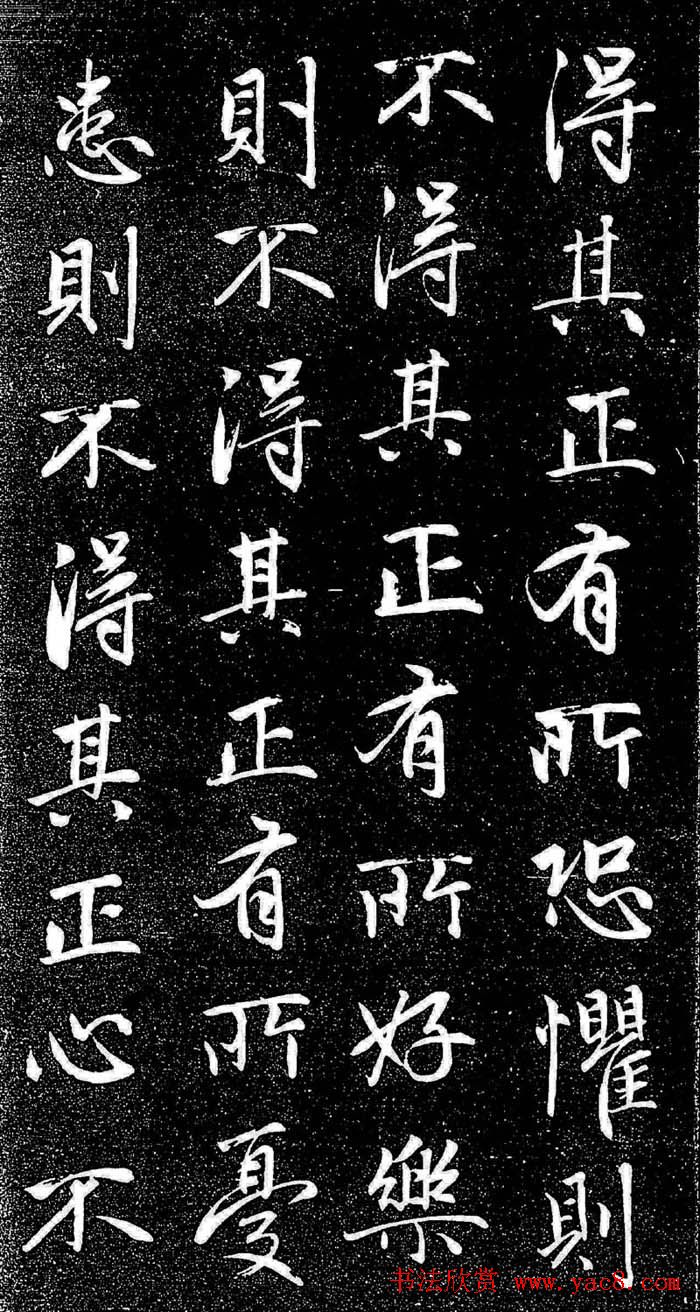 得其正有所恐懼則
不得其正有所好樂
則不得其正有所憂
患則不得其正心不
书法欣赏 www.yac8.com